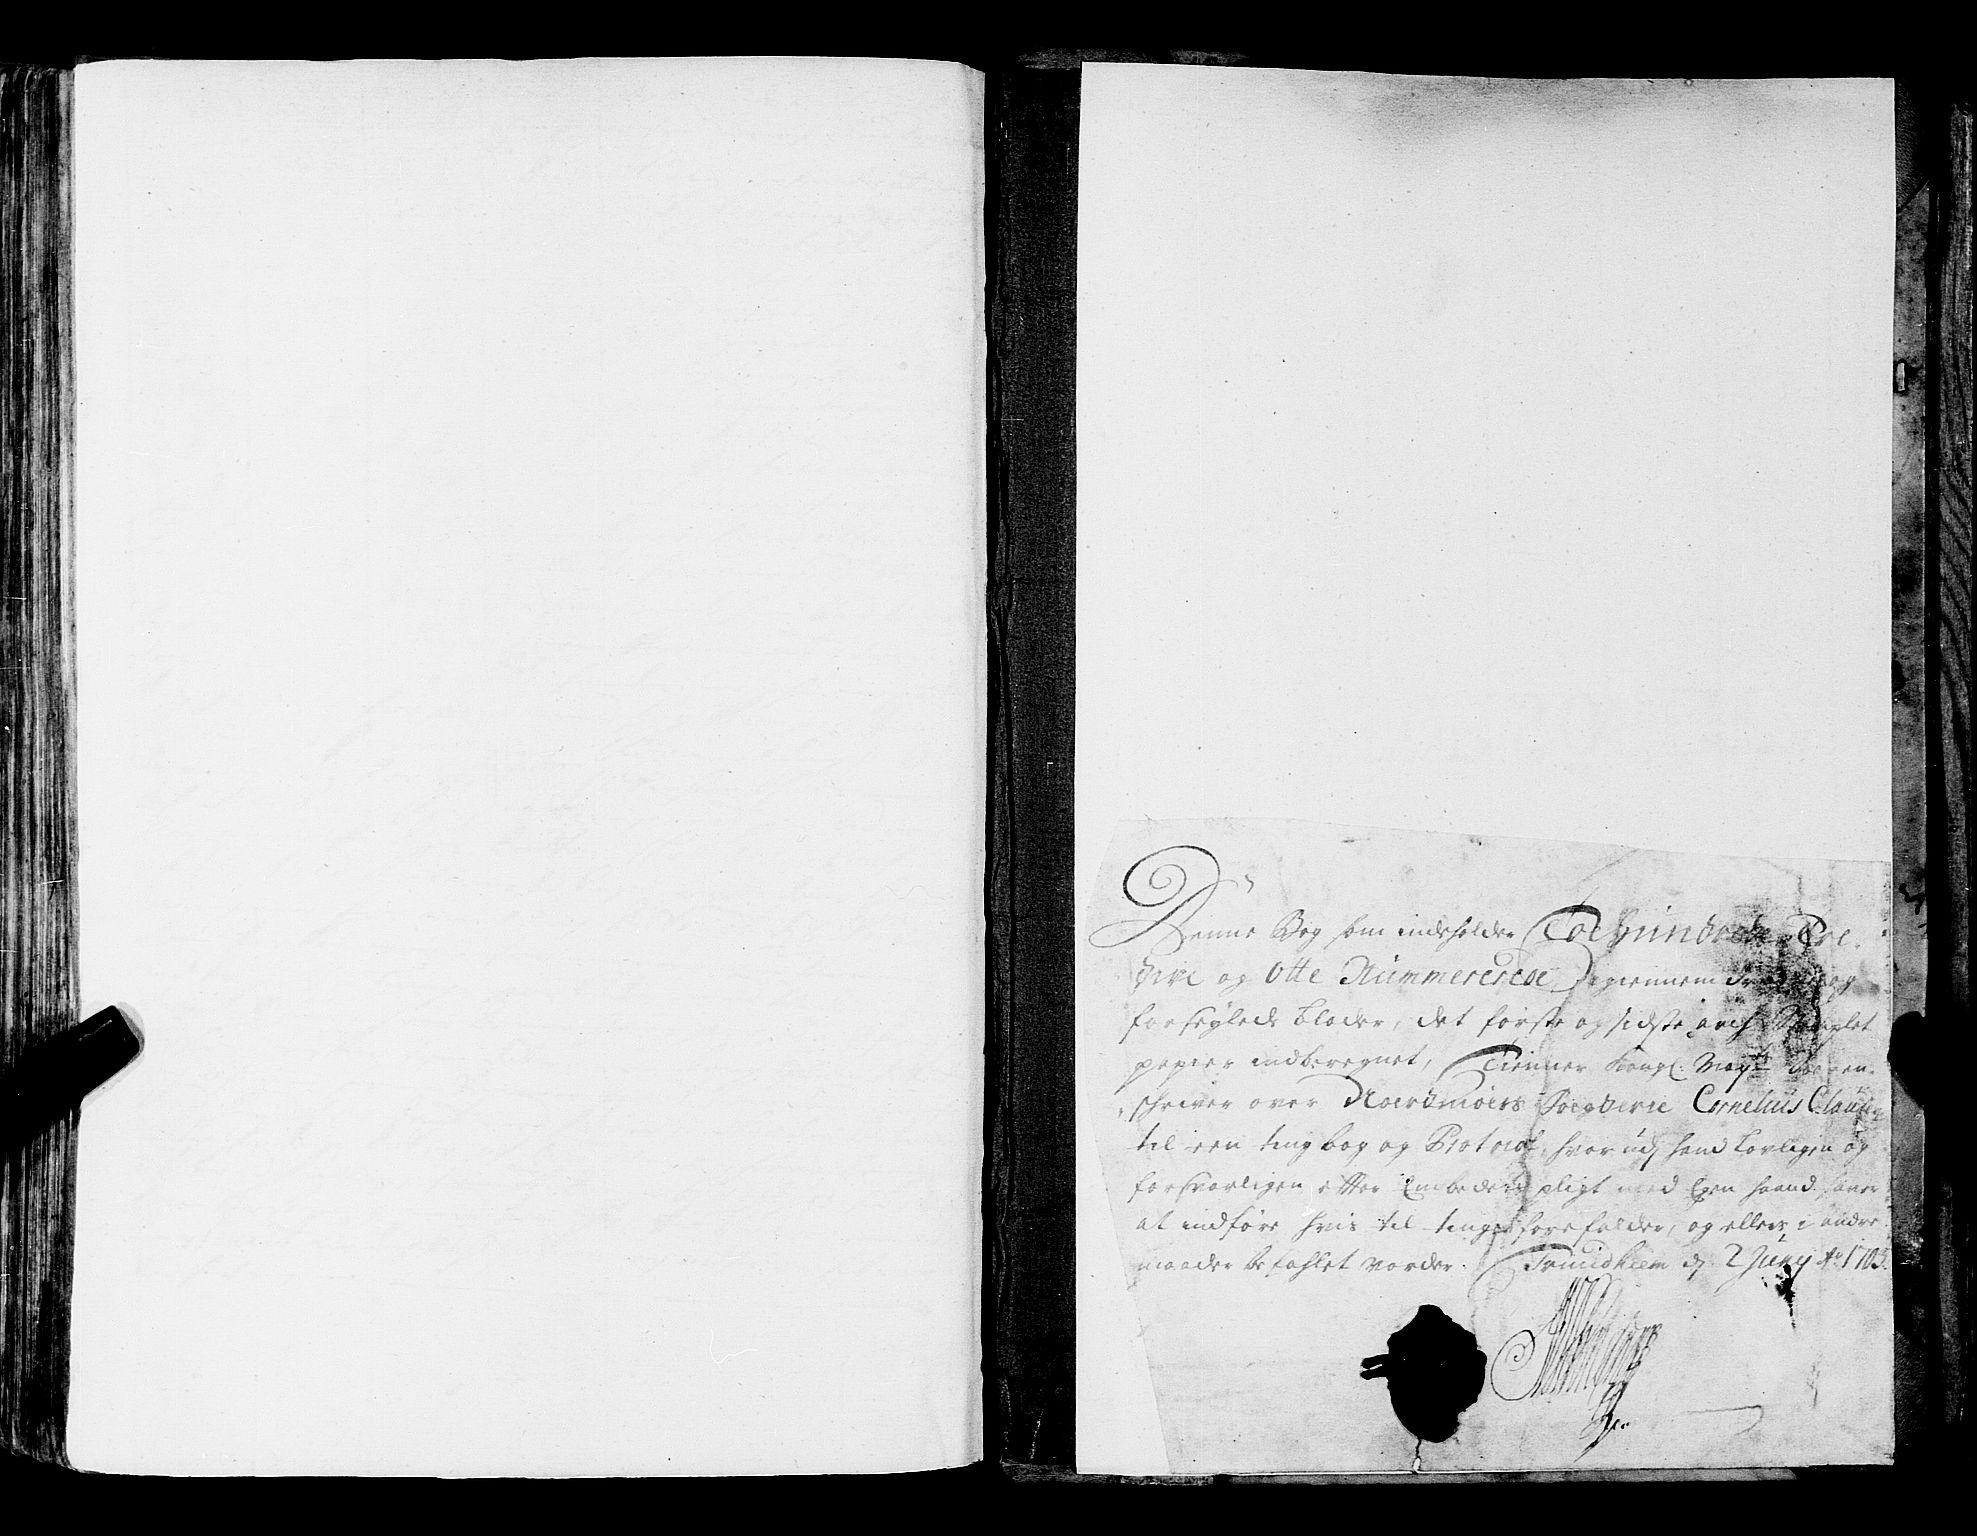 Denne Bog som indeholder Toehundrede Tre-
sive og Otte Nummererede Igiennemdragne og
forseylede blader, det første og sidste arch Stemplet
papier indberegnet, Tienner Kongl: Mayts Soeren-
schriver over Noerdmøers Fogderie Cornelius Clausen
til een ting bog og Protocol, hvor udj hand Lovligen og
forsvarligen effter Embedets pligt med Egen haand haver
at indføre hvis til tinge forefalder, og ellers i andre
maader befahlet vorder. Trundhiem dj 2 Juny Ao 1703.